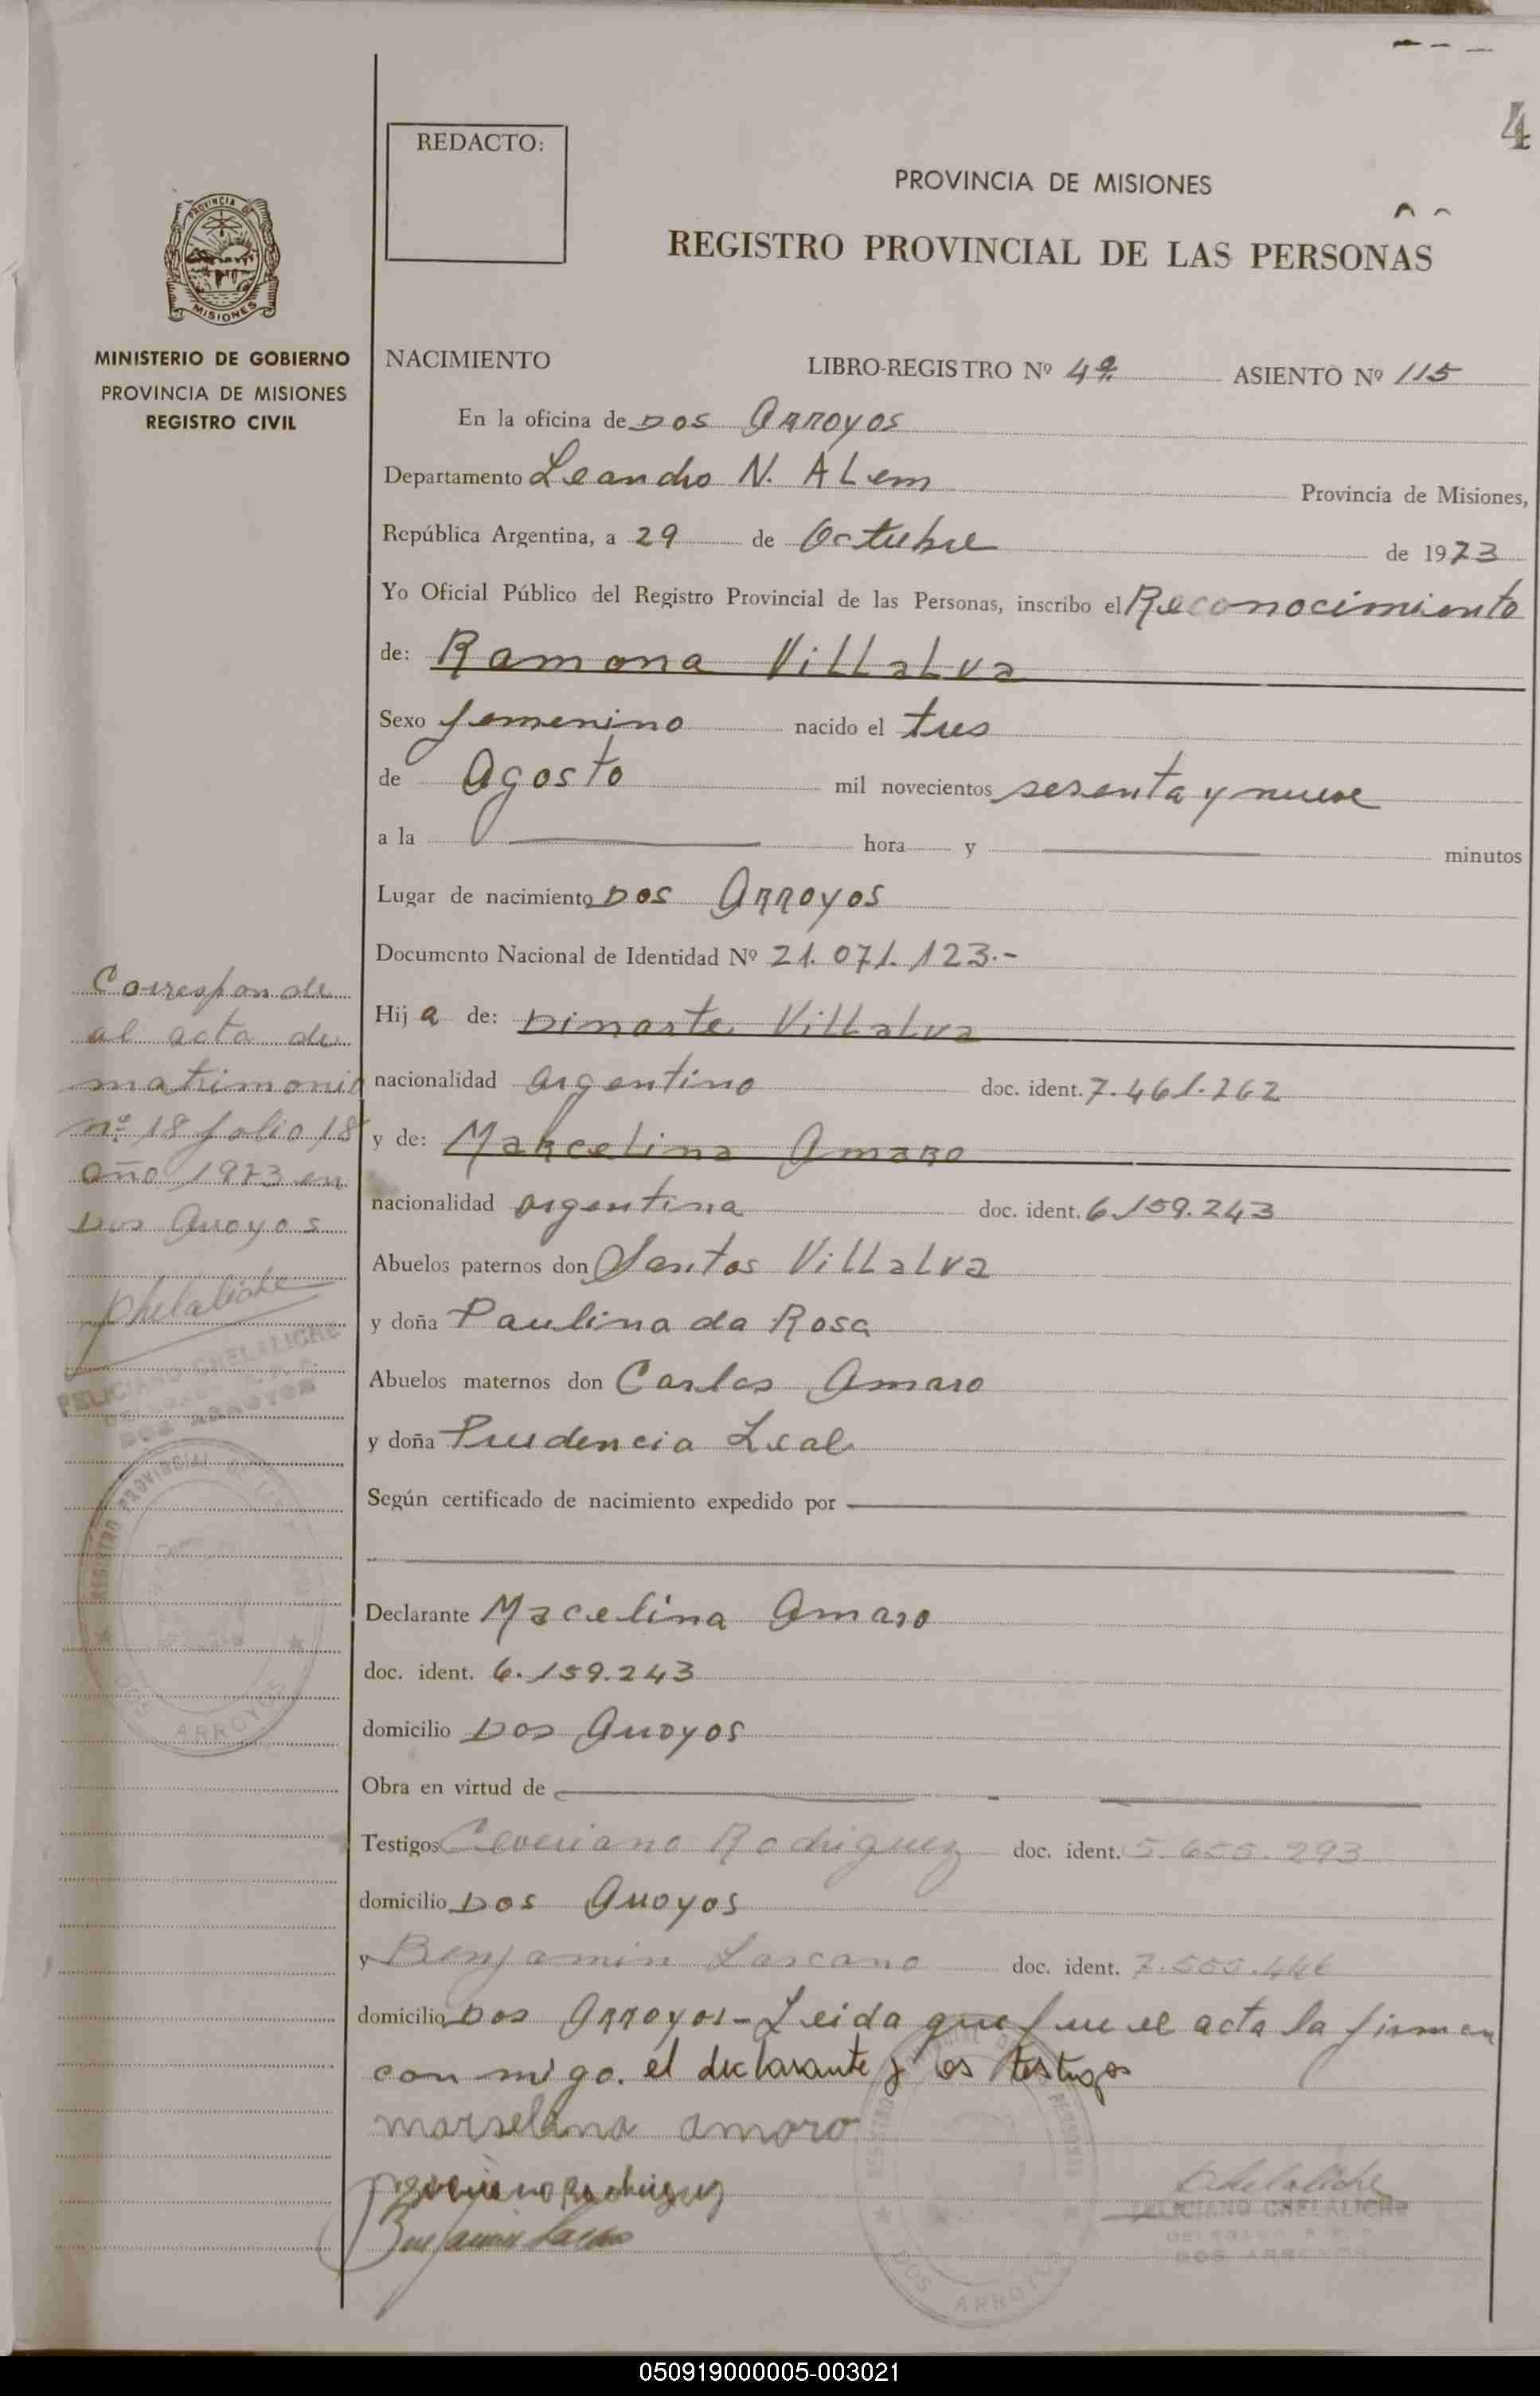 4
REDACTO:
PROVINCIA DE MISIONES
REGISTRO PROVINCIAL DE LAS PERSONAS
PROVINCIA DE
MISIONES
MINISTERIO DE GOBIERNO
PROVINCIA DE MISIONES
REGISTRO CIVIL
NACIMIENTO LIBRO-REGISTRO Nº 4º ASIENTO Nº 115
En la oficina de Dos Arroyos
Departamento Leandro N. ALem Provincia de Misiones,
República Argentina, a 29 de Octubre de 1973
Yo Oficial Público del Registro Provincial de las Personas, inscribo el Reconocimiento
de: Ramona Villalva
Sexo femenino nacido el tres
de Agosto mil novecientos sesenta y nueve
a la hora y minutos
Lugar de nacimiento Dos Arroyos
Documento Nacional de Identidad Nº 21.071.123.-
Hija de: Dinarte Villalva
nacionalidad argentino doc. ident. 7.461.262
y de: Marcelina Amaro
nacionalidad argentina doc. ident. 6.159.243
Abuelos paternos don Santos Villalva
y doña Paulina da Rosa
Abuelos maternos don Carlos Amaro
y doña Prudencia Leal
Según certificado de nacimiento expedido por
Declarante Macelina Amaro
doc. ident. 6.159.243
domicilio Dos Arroyos
Obra en virtud de
Testigos Ceveriano Rodriguez doc. ident. 5.655.293
domicilio Dos Arroyos
y Benjamin Lascano doc. ident.
domicilio Dos Arroyos - Leida que fue el acta la firman
con migo. el declarante y los testigos
marselina amoro
Rodriguez
Benjamin
Corresponde
al acta de
matrimonio
nº 18 folio 18
año 1973 en
Dos Arroyos
Chelaliche
FELICIANO CHELALICHE
DOS ARROYOS
REGISTRO PROVINCIAL DE LAS
DOS ARROYOS
REGISTRO
DOS ARROYOS
Chelaliche
FELICIANO CHELALICHE
DELEGADO R. P. P.
DOS ARROYOS
050919000005-003021